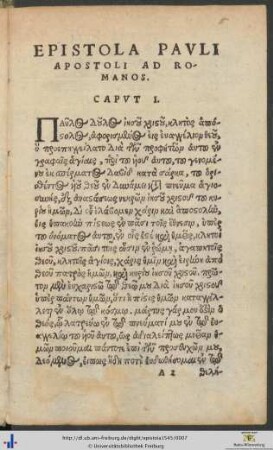 EPISTOLA PAVLI
APOSTOLI AD RO-
MANOS.
CAPVT I.
Παῦλος δοῦλος ἰησοῦ χριστοῦ, κλητὸς ἀπό-
στολος, ἀφορισμένος εἰς εὐαγγέλιον θεοῦ,
ὃ προεπηγγείλατο διὰ τῶν προφητῶν αὑτοῦ ἐν
γραφαῖς ἁγίαις, περὶ τοῦ υἱοῦ αὑτοῦ, τοῦ γενομένου
ἐκ σπέρματος Δαβὶδ κατὰ σάρκα, τοῦ ὁρι-
σθέντος υἱοῦ θεοῦ ἐν δυνάμει κατὰ πνεῦμα ἁγιο-
σύνης, ἐξ ἀναστάσεως νεκρῶν ἰησοῦ χριστοῦ τοῦ κυρί-
ου ἡμῶν, Δι' οὗ ἐλάβομεν χάριν καὶ ἀποστολὴν,
εἰς ὑπακοὴν πίστεως ἐν πᾶσι τοῖς ἔθνεσιν, ὑπὲρ
τοῦ ὀνόματος αὐτοῦ, ἐν οἷς ἐστὲ καὶ ὑμεῖς, κλητοὶ
ἰησοῦ χριστοῦ πᾶσι τοῖς οὖσιν ἐν ῥώμῃ, ἀγαπητοῖς
θεοῦ, κλητοῖς ἁγίοις, χάρις ὑμῖν καὶ εἰρήνη ἀπὸ
θεοῦ πατρὸς ἡμῶν, καὶ κυρίου ἰησοῦ χριστοῦ. πρῶ-
τον μὲν εὐχαριστῶ τῷ θεῷ μου διὰ ἰησοῦ χριστοῦ
ὑπὲρ πάντων ὑμῶν, ὅτι ἡ πίστις ὑμῶν καταγγέλ-
λεται ἐν ὅλῳ τῷ κόσμῳ, μάρτυς γάρ μου ἐστὶν ὁ
θεὸς, ᾧ λατρεύω ἐν τῷ πνεύματί μου ἐν τῷ εὐ-
αγγελίῳ τοῦ υἱοῦ αὑτοῦ, ὡς ἀδιαλείπτως μνείαν ὑ-
μῶν ποιοῦμαι πάντοτε ἐπὶ τῶν προσευχῶν μου,
δεόμενος, εἴπως ἤδη ποτὲ εὐοδωθήσομαι ἐν τῷ
A 2 θελή-
© Universitätsbibliothek Freiburg